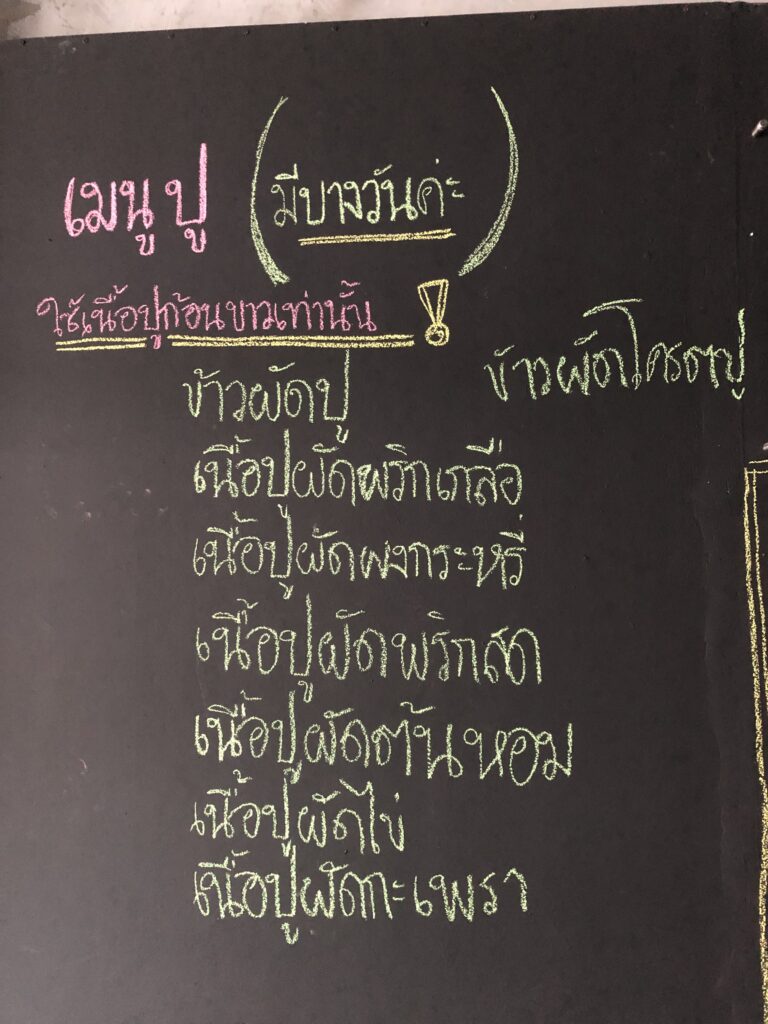 เมนูปู (มีบางวันค่ะ)
ใช้เนื้อปูก้อนขาวเท่านั้น !
ข้าวผัดปู
ข้าวผัดโคตรปู
เนื้อปูผัดพริกเกลือ
เนื้อปูผัดผงกระหรี่
เนื้อปูผัดพริกสด
เนื้อปูผัดต้นหอม
เนื้อปูผัดไข่
เนื้อปูผัดกะเพรา